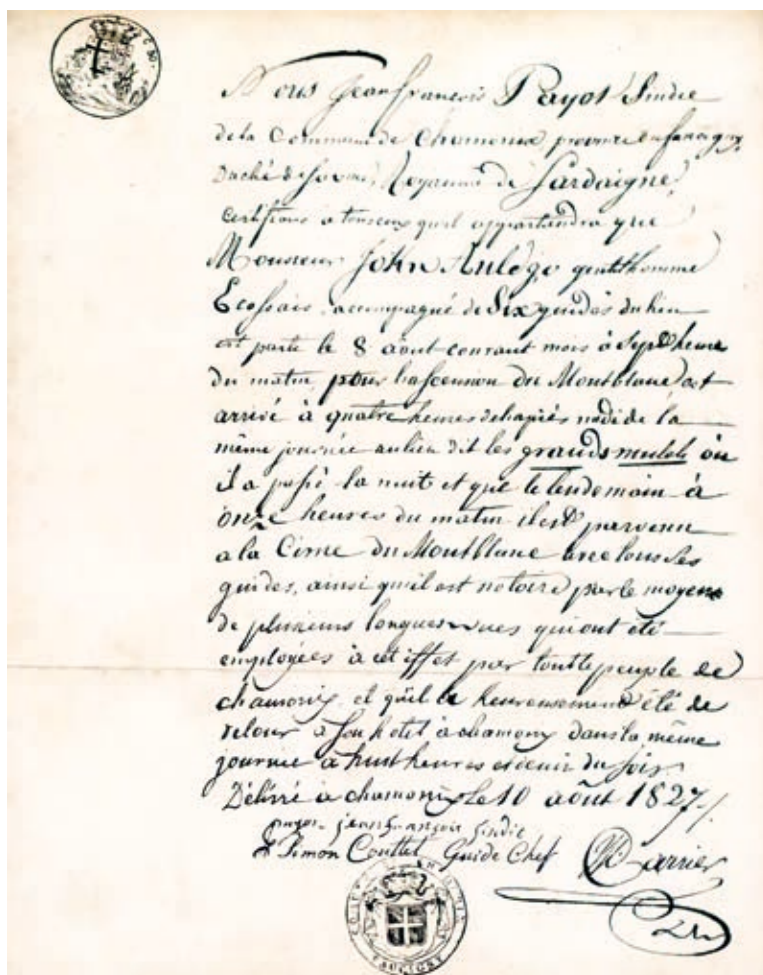 Nous Jean françois Payot Sindic
de la Commune de Chamonix province du faucigny
Duché de Savoie, Royaume de Sardaigne,
certifions a tous ceux qu'il appartiendra que
Monsieur John Auldjo gentilhomme
Ecossais, accompagné de Six guides du lieu
est parti le 8 août courant mois à Sept heure
du matin, pour l'ascension du Montblanc est
arrivé à quatre heures de l'après midi de la
même journée au lieu dit les grands mulets où
il a passé la nuit et que le lendemain à
onze heures du matin il est parvenu
a la Cime du Montblanc avec tous ses
guides, ainsi qu'il est notoire par le moyen
de plusieurs longues vues qui ont été
employées à cet effet par tout le peuple de
chamonix, et qu'il a heureusement été de
retour à Son hotel à chamony dans la même
journée à huit heures et demi du Soir
Délivré à chamonix le 10 août 1827
payot jean françois Sindic
Simon Couttet Guide Chef Carrier
FAUCIGNY